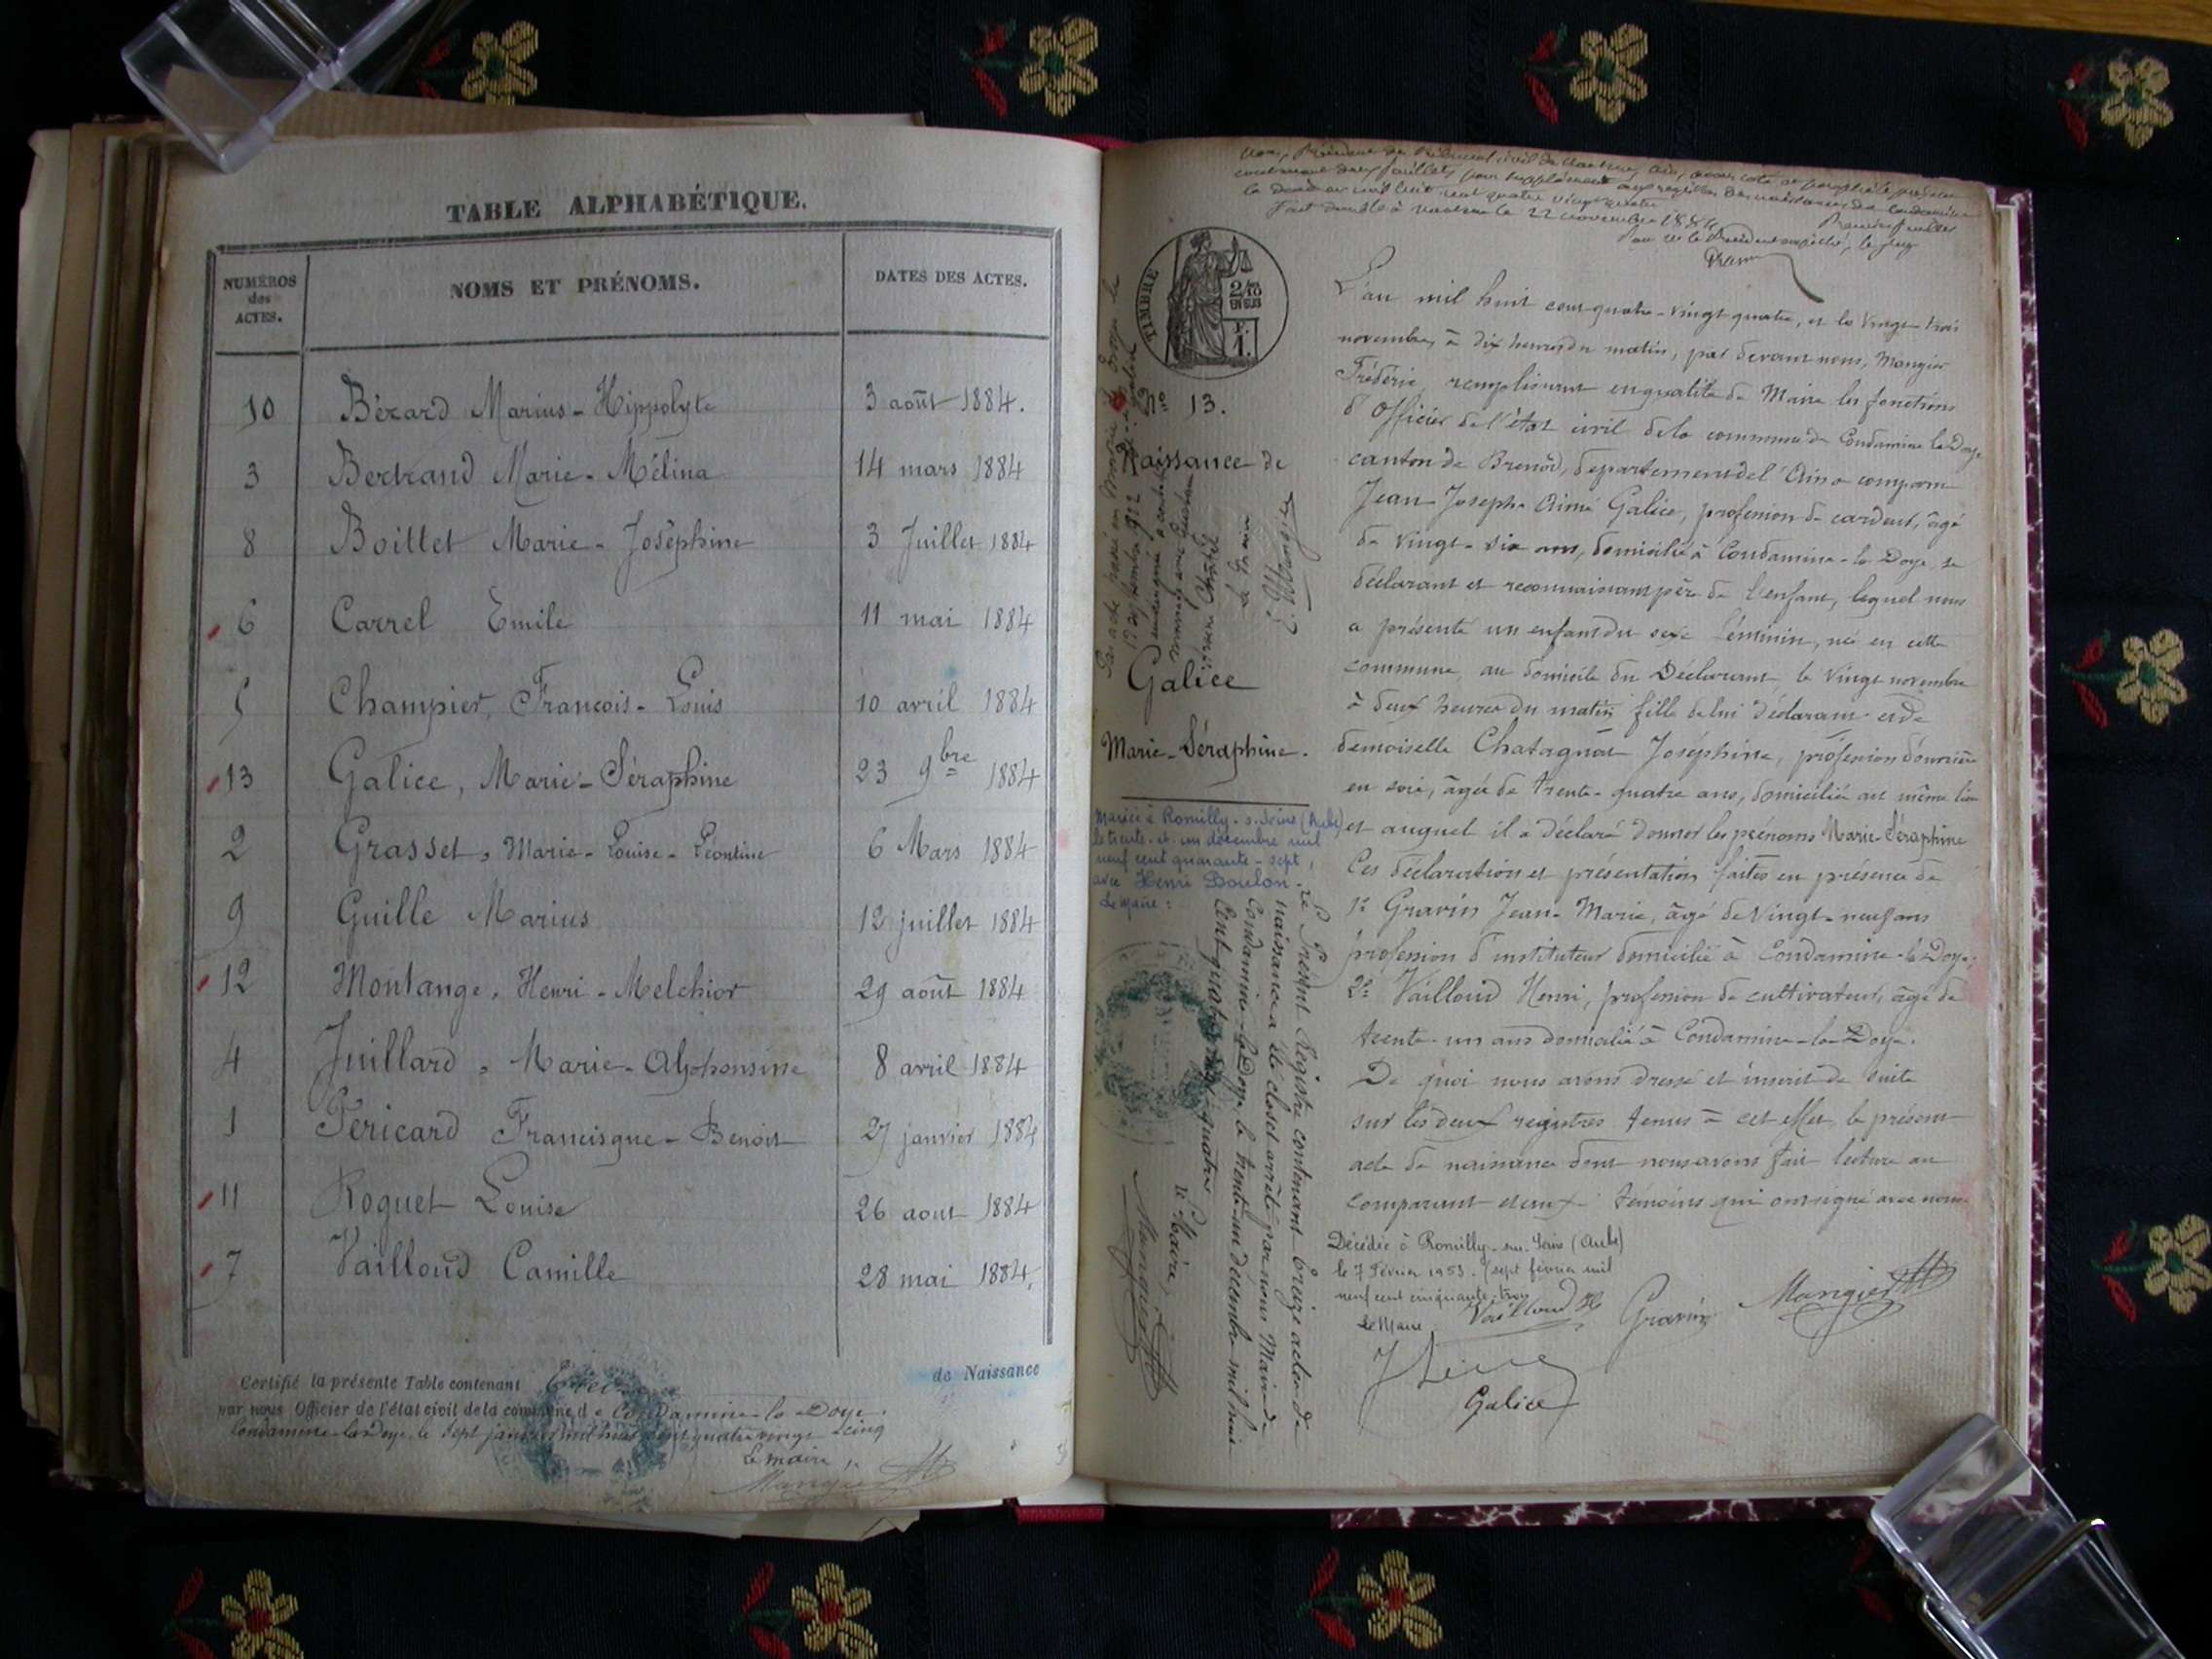 TABLE ALPHABÉTIQUE.
NUMÉROS des ACTES.
NOMS ET PRÉNOMS.
DATES DES ACTES.
10 Bérard Marius - Hippolyte 3 août 1884.
3 Bertrand Marie - Mélina 14 mars 1884
8 Boillet Marie - Joséphine 3 Juillet 1884
6 Carrel Emile 11 mai 1884
5 Champier, François - Louis 10 avril 1884
13 Galice, Marie - Séraphine 23 9bre 1884
2 Grasset, Marie - Louise - Léontine 6 Mars 1884
9 Guille Marius 12 juillet 1884
12 Montange, Henri - Melchior 29 août 1884
4 Juillard, Marie - Alphonsine 8 avril 1884
1 Pericard Francisque - Benoit 27 janvier 1884
11 Roquet Louise 26 aout 1884
7 Vailloud Camille 28 mai 1884,
Certifié la présente Table contenant de Naissance
par nous Officier de l'état civil de la commune de Condamine-la-Doye.
Condamine-la-Doye, le sept janvier mil huit cent quatre vingt cinq
Le maire,
Mangier
Fait double à le 22 novembre 1884
TIMBRE
2/10 EN SUS
F. 1.
No 13.
Naissance de
Galice
Marie - Séraphine.
Mariée à Romilly-s-Seine (Aube)
le trente-et-un décembre mil
neuf cent quarante-sept,
avec Henri Doulon.
Le Maire :
Le Présent Registre contenant treize actes de
naissance a été clos et arrêté par nous Maire de
Condamine-la-Doye, le trente-un décembre mil huit
cent quatre vingt quatre
Le Maire,
Mangier
L'an mil huit cent quatre-vingt quatre, et le vingt-trois
novembre, à dix heures du matin, par devant nous, Mangier
Frédéric, remplissant en qualité de Maire les fonctions
d'Officier de l'état civil de la commune de Condamine la Doye
canton de Brénod, département de l'Ain a comparu
Jean Joseph Aimé Galice, profession de cardeur, âgé
de vingt-six ans, domicilié à Condamine-la-Doye, se
déclarant et reconnaissant père de l'enfant, lequel nous
a présenté un enfant du sexe féminin, né en cette
commune, au domicile du Déclarant, le vingt novembre
à deux heures du matin fille de lui déclarant et de
demoiselle Chatagnat Joséphine, profession d'ouvrière
en soie, âgée de trente-quatre ans, domiciliée au même lieu
et auquel il a déclaré donner les prénoms Marie-Séraphine
Ces déclaration et présentation faites en présence de
1° Gravin Jean-Marie, âgé de vingt-neuf ans
profession d'instituteur domicilié à Condamine-la-Doye;
2° Vailloud Henri, profession de cultivateur, âgé de
trente-un ans domicilié à Condamine-la-Doye.
De quoi nous avons dressé et inscrit de suite
sur les deux registres tenus à cet effet, le présent
acte de naissance dont nous avons fait lecture au
comparant et aux témoins qui ont signé avec nous
Décédée à Romilly-sur-Seine (Aube)
le 7 Février 1953. (sept février mil
neuf cent cinquante-trois
Le Maire
Vailloud H
Gravin
Mangier
Galice